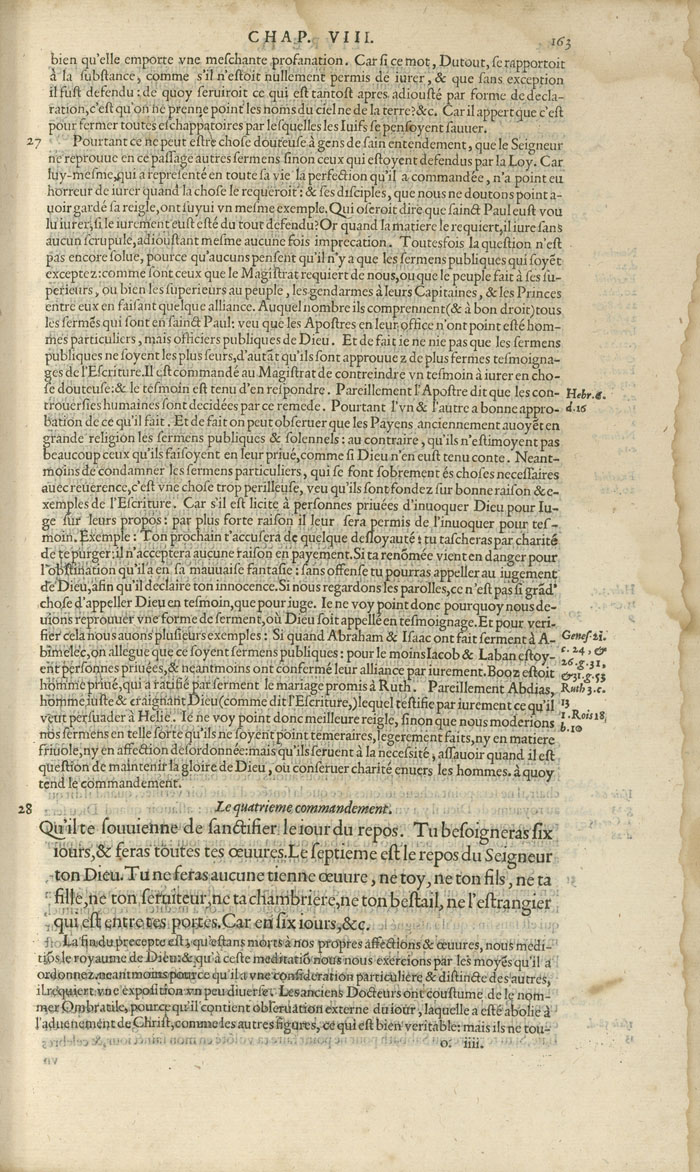 CHAP. VIII. 163
bien qu'elle emporte vne meschante profanation. Car si ce mot, Dutout, se rapportoit
à la substance, comme s'il n'estoit nullement permis de iurer, & que sans exception
il fust defendu: de quoy seruiroit ce qui est tantost apres adiousté par forme de decla-
ration, c'est qu'on ne prenne point les noms du ciel ne de la terre? &c. Car il appert que c'est
pour fermer toutes eschappatoires par lesquelles les Iuifs se pensoyent sauuer.
27 Pourtant ce ne peut estre chose douteuse à gens de sain entendement, que le Seigneur
ne reprouue en ce passage autres sermens sinon ceux qui estoyent defendus par la Loy. Car
luy-mesme, qui a representé en toute sa vie la perfection qu'il a commandée, n'a point eu
horreur de iurer quand la chose le requeroit: & ses disciples, que nous ne doutons point a-
uoir gardé sa reigle, ont suyui vn mesme exemple. Qui oseroit dire que sainct Paul eust vou
lu iurer, si le iurement eust esté du tout defendu? Or quand la matiere le requiert, il iure sans
aucun scrupule, adioustant mesme aucune fois imprecation. Toutesfois la question n'est
pas encore solue, pource qu'aucuns pensent qu'il n'y a que les sermens publiques qui soyēt
exceptez: comme sont ceux que le Magistrat requiert de nous, ou que le peuple fait à ses su-
perieurs, ou bien les superieurs au peuple, les gendarmes à leurs Capitaines, & les Princes
entre eux en faisant quelque alliance. Auquel nombre ils comprennent (& à bon droit) tous
les sermēs qui sont en sainct Paul: veu que les Apostres en leur office n'ont point esté hom-
mes particuliers, mais officiers publiques de Dieu. Et de fait ie ne nie pas que les sermens
publiques ne soyent les plus seurs, d'autāt qu'ils sont approuuez de plus fermes tesmoigna-
ges de l'Escriture. Il est commandé au Magistrat de contreindre vn tesmoin à iurer en cho-
se douteuse: & le tesmoin est tenu d'en respondre. Pareillement l'Apostre dit que les con-
Hebr. 6.
trouersies humaines sont decidées par ce remede. Pourtant l'vn & l'autre a bonne appro-
d. 16
bation de ce qu'il fait. Et de fait on peut obseruer que les Payens anciennement auoyēt en
grande religion les sermens publiques & solennels: au contraire, qu'ils n'estimoyent pas
beaucoup ceux qu'ils faisoyent en leur priué, comme si Dieu n'en eust tenu conte. Neant-
moins de condamner les sermens particuliers, qui se font sobrement és choses necessaires
auec reuerence, c'est vne chose trop perilleuse, veu qu'ils sont fondez sur bonne raison & e-
xemples de l'Escriture. Car s'il est licite à personnes priuées d'inuoquer Dieu pour Iu-
ge sur leurs propos: par plus forte raison il leur sera permis de l'inuoquer pour tes-
moin. Exemple: Ton prochain t'accusera de quelque desloyauté: tu tascheras par charité
de te purger: il n'acceptera aucune raison en payement. Si ta renōmée vient en danger pour
l'obstination qu'il a en sa mauuaise fantasie: sans offense tu pourras appeller au iugement
de Dieu, afin qu'il declaire ton innocence. Si nous regardons les parolles, ce n'est pas si grād'
chose d'appeller Dieu en tesmoin, que pour iuge. Ie ne voy point donc pourquoy nous de-
uions reprouuer vne forme de serment, où Dieu soit appellé en tesmoignage. Et pour veri-
fier cela nous auons plusieurs exemples: Si quand Abraham & Isaac ont fait serment à A-
Genes. 21.
bimelec, on allegue que ce soyent sermens publiques: pour le moins Iacob & Laban estoy-
c. 24, &
ent personnes priuées, & neantmoins ont confermé leur alliance par iurement. Booz estoit
26. g. 31,
& 31. g. 53
homme priué, qui a ratifié par serment le mariage promis à Ruth. Pareillement Abdias,
Ruth 3. c.
homme iuste & craignant Dieu (comme dit l'Escriture,) lequel testifie par iurement ce qu'il
13
veut persuader à Helie. Ie ne voy point donc meilleure reigle, sinon que nous moderions
1. Rois 18,
nos sermens en telle sorte qu'ils ne soyent point temeraires, legerement faits, ny en matiere
b. 10
friuole, ny en affection desordonnée: mais qu'ils seruent à la necessité, assauoir quand il est
question de maintenir la gloire de Dieu, ou conseruer charité enuers les hommes. à quoy
tend le commandement.
28 Le quatrieme commandement.
Qu'il te souuienne de sanctifier le iour du repos. Tu besoigneras six
iours, & feras toutes tes œuures. Le septieme est le repos du Seigneur
ton Dieu. Tu ne feras aucune tienne œuure, ne toy, ne ton fils, ne ta
fille, ne ton seruiteur, ne ta chambriere, ne ton bestail, ne l'estrangier
qui est entre tes portes. Car en six iours, &c.
La fin du precepte est, qu'estans morts à nos propres affections & œuures, nous medi-
tiōs le royaume de Dieu: & qu'à ceste meditatiō nous nous exercions par les moyēs qu'il a
ordonnez. neantmoins pource qu'il a vne consideration particuliere & distincte des autres,
il requiert vne exposition vn peu diuerse. Les anciens Docteurs ont coustume de le nom-
mer Ombratile, pource qu'il contient obseruation externe du iour, laquelle a esté abolie à
l'aduenement de Christ, comme les autres figures, ce qui est bien veritable: mais ils ne tou-
o. iiii.